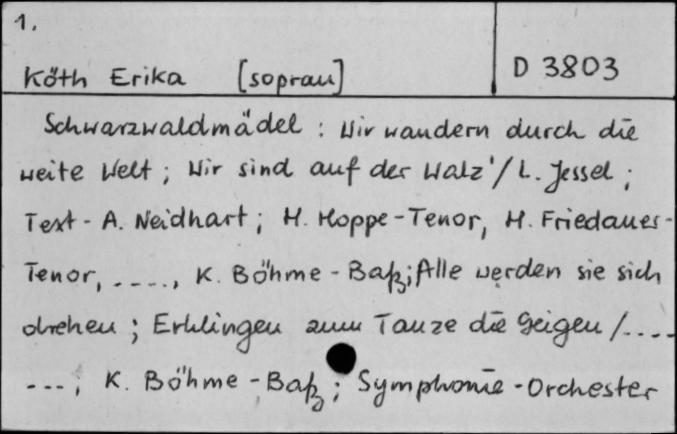 1.
Köth Erika [sopran]
D 3803
Schwarzwaldmädel : Wir wandern durch die
weite Welt ; Wir sind auf der Walz'/ L. Jessel ;
Text - A. Neidhart ; H. Hoppe - Tenor, H. Friedauer-
Tenor, ----, K. Böhme - Baß ; Alle werden sie sich
drehen ; Erklingen zum Tanze die Geigen /----
---, K. Böhme - Baß ; Symphonie - Orchester